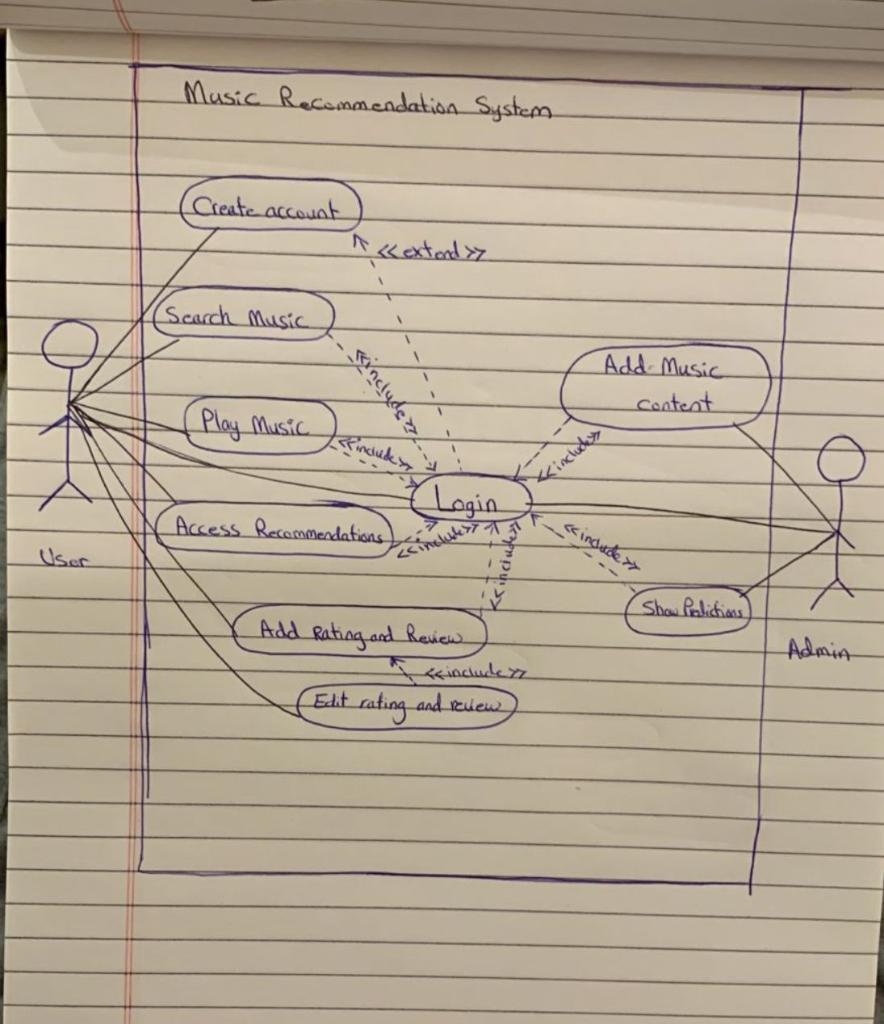 Music Recommendation System
Create account
<<extend>>
Search Music
<<include>>
Add Music
content
Play Music
<<include>>
<<include>>
Login
Access Recommendations
<<include>>
<<include>>
<<include>>
User
Show
Add Rating and Review
Admin
<<include>>
Edit rating and review